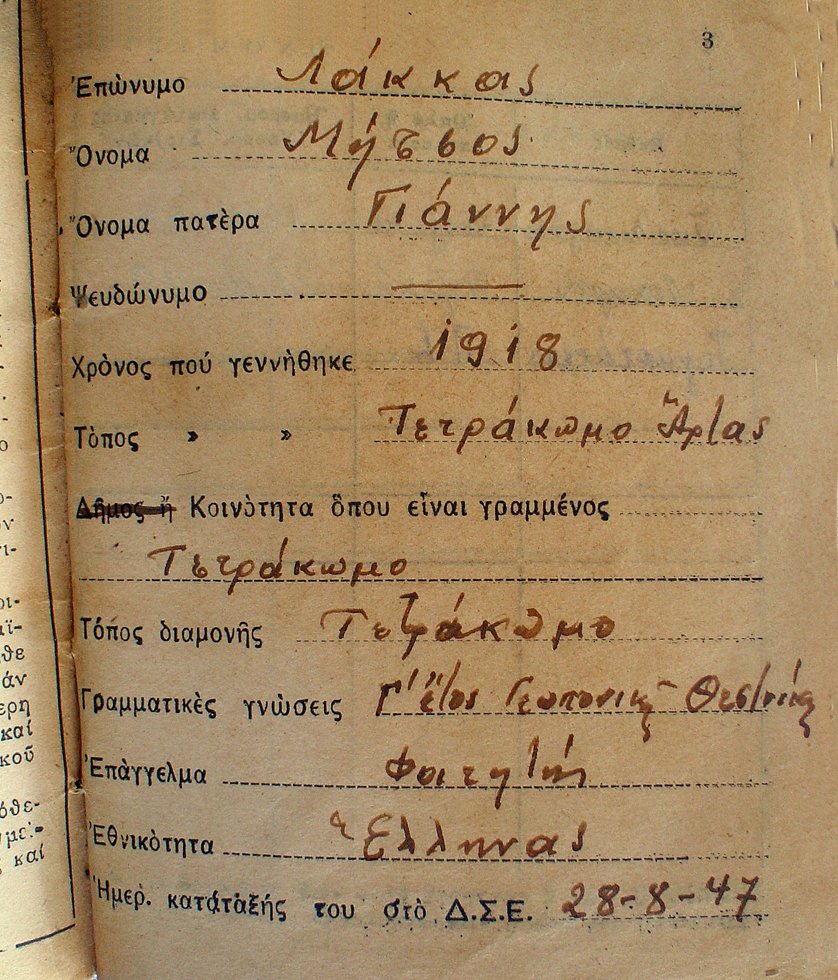 3
Ἐπὼνυμο Λάκκας
Ὄνομα Μήτσος
Ὄνομα πατὲρα Γιάννης
Ψευδώνυμο
Χρὸνος ποὐ γεννὴθηκε 1918
Τὸπος » » Τετράκωμο Ἄρτας
Δῆμος ἤ Κοινὸτητα ὅπου εἶναι γραμμένος
Τετράκωμο
Τόπος διαμονῆς Τετράκωμο
Γραμματικὲς γνὼσεις Γ' ἔτος Γεωπονικῆς Θεσ/νίκης
Ἐπὰγγελμα Φοιτητής
Ἐθνικὸτητα Ἕλληνας
Ἡμερ. κατὰταξής του στὸ Δ.Σ.Ε. 28-8-47